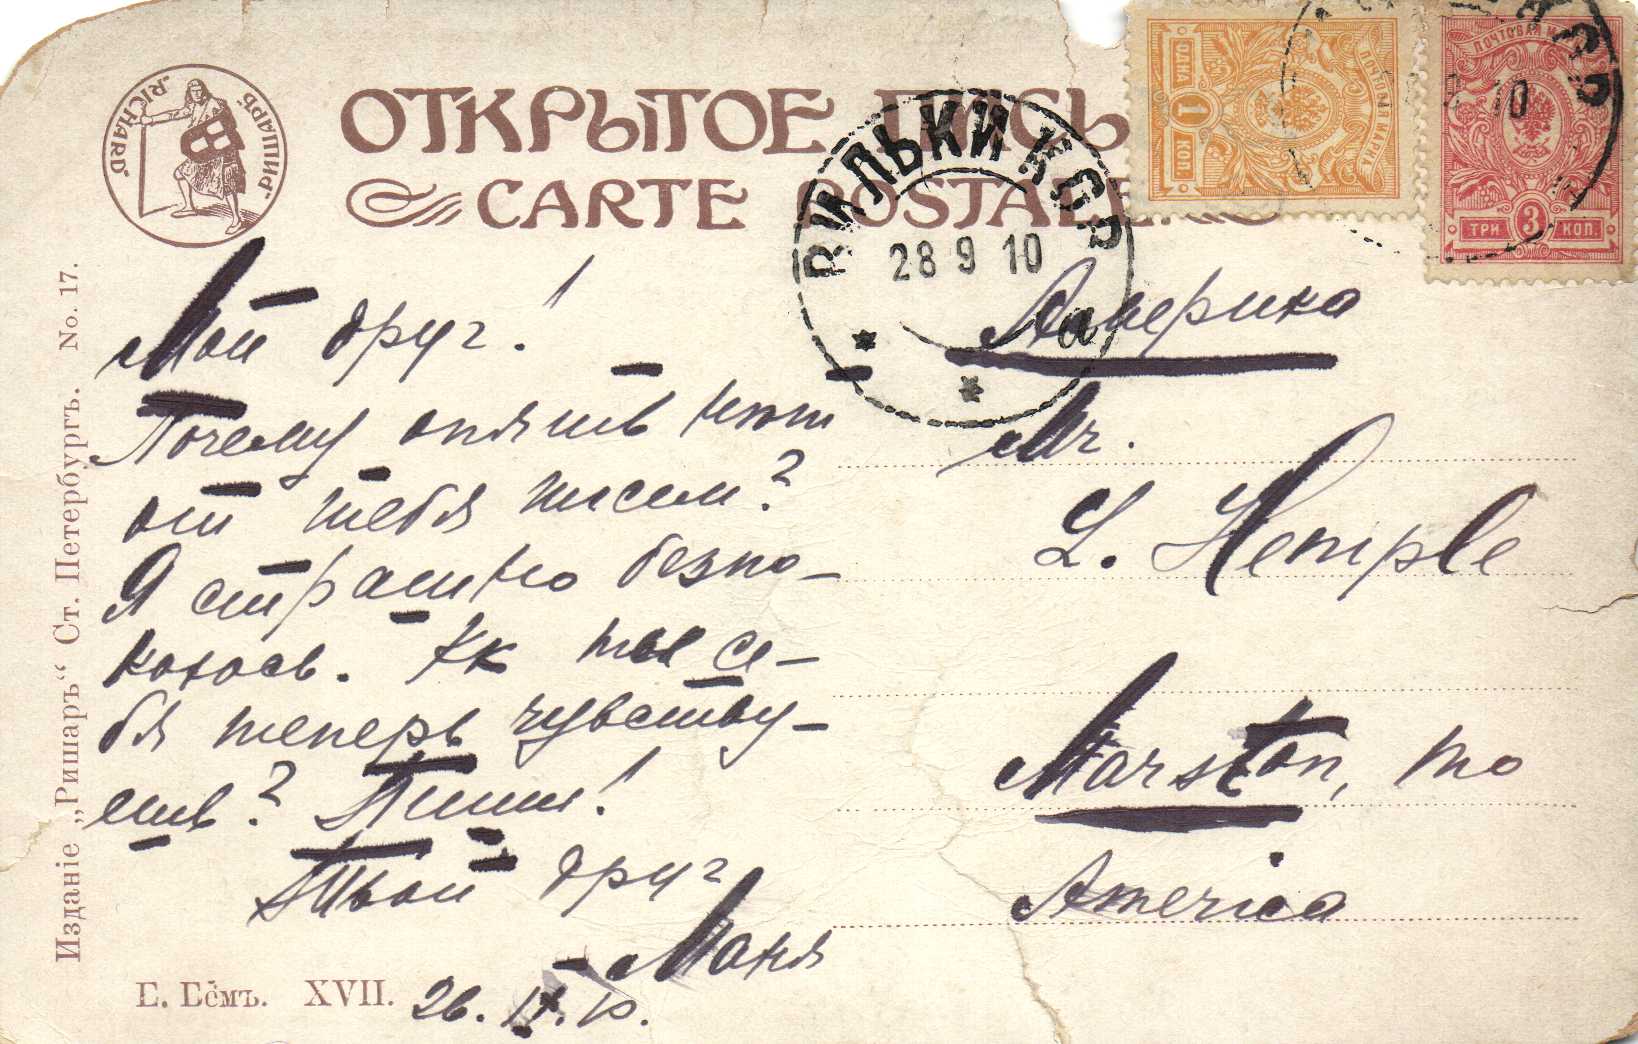 „RICHARD“ „РИШАРЪ“
ОТКРЫТОЕ ПИСЬ
CARTE POSTALE.
ВИЛЬКИ КОВ
28 9 10
а
ПОЧТОВАЯ МАРКА
ОДНА 1 КОП.
ПОЧТОВАЯ М
ТРИ 3 КОП.
10
Издание „Ришаръ“ Ст. Петербургъ. No. 17.
Мой друг!
Почему опять нет
от тебя писем?
Я страшно безпо-
коюсь. Кк ты се-
бя теперь чувству-
ешь? Пиши!
Твой друг
Маня
26. IX. 10.
Е. Бёмъ. XVII.
Америка
Mr.
L. Hemple
Marston, Mo
America